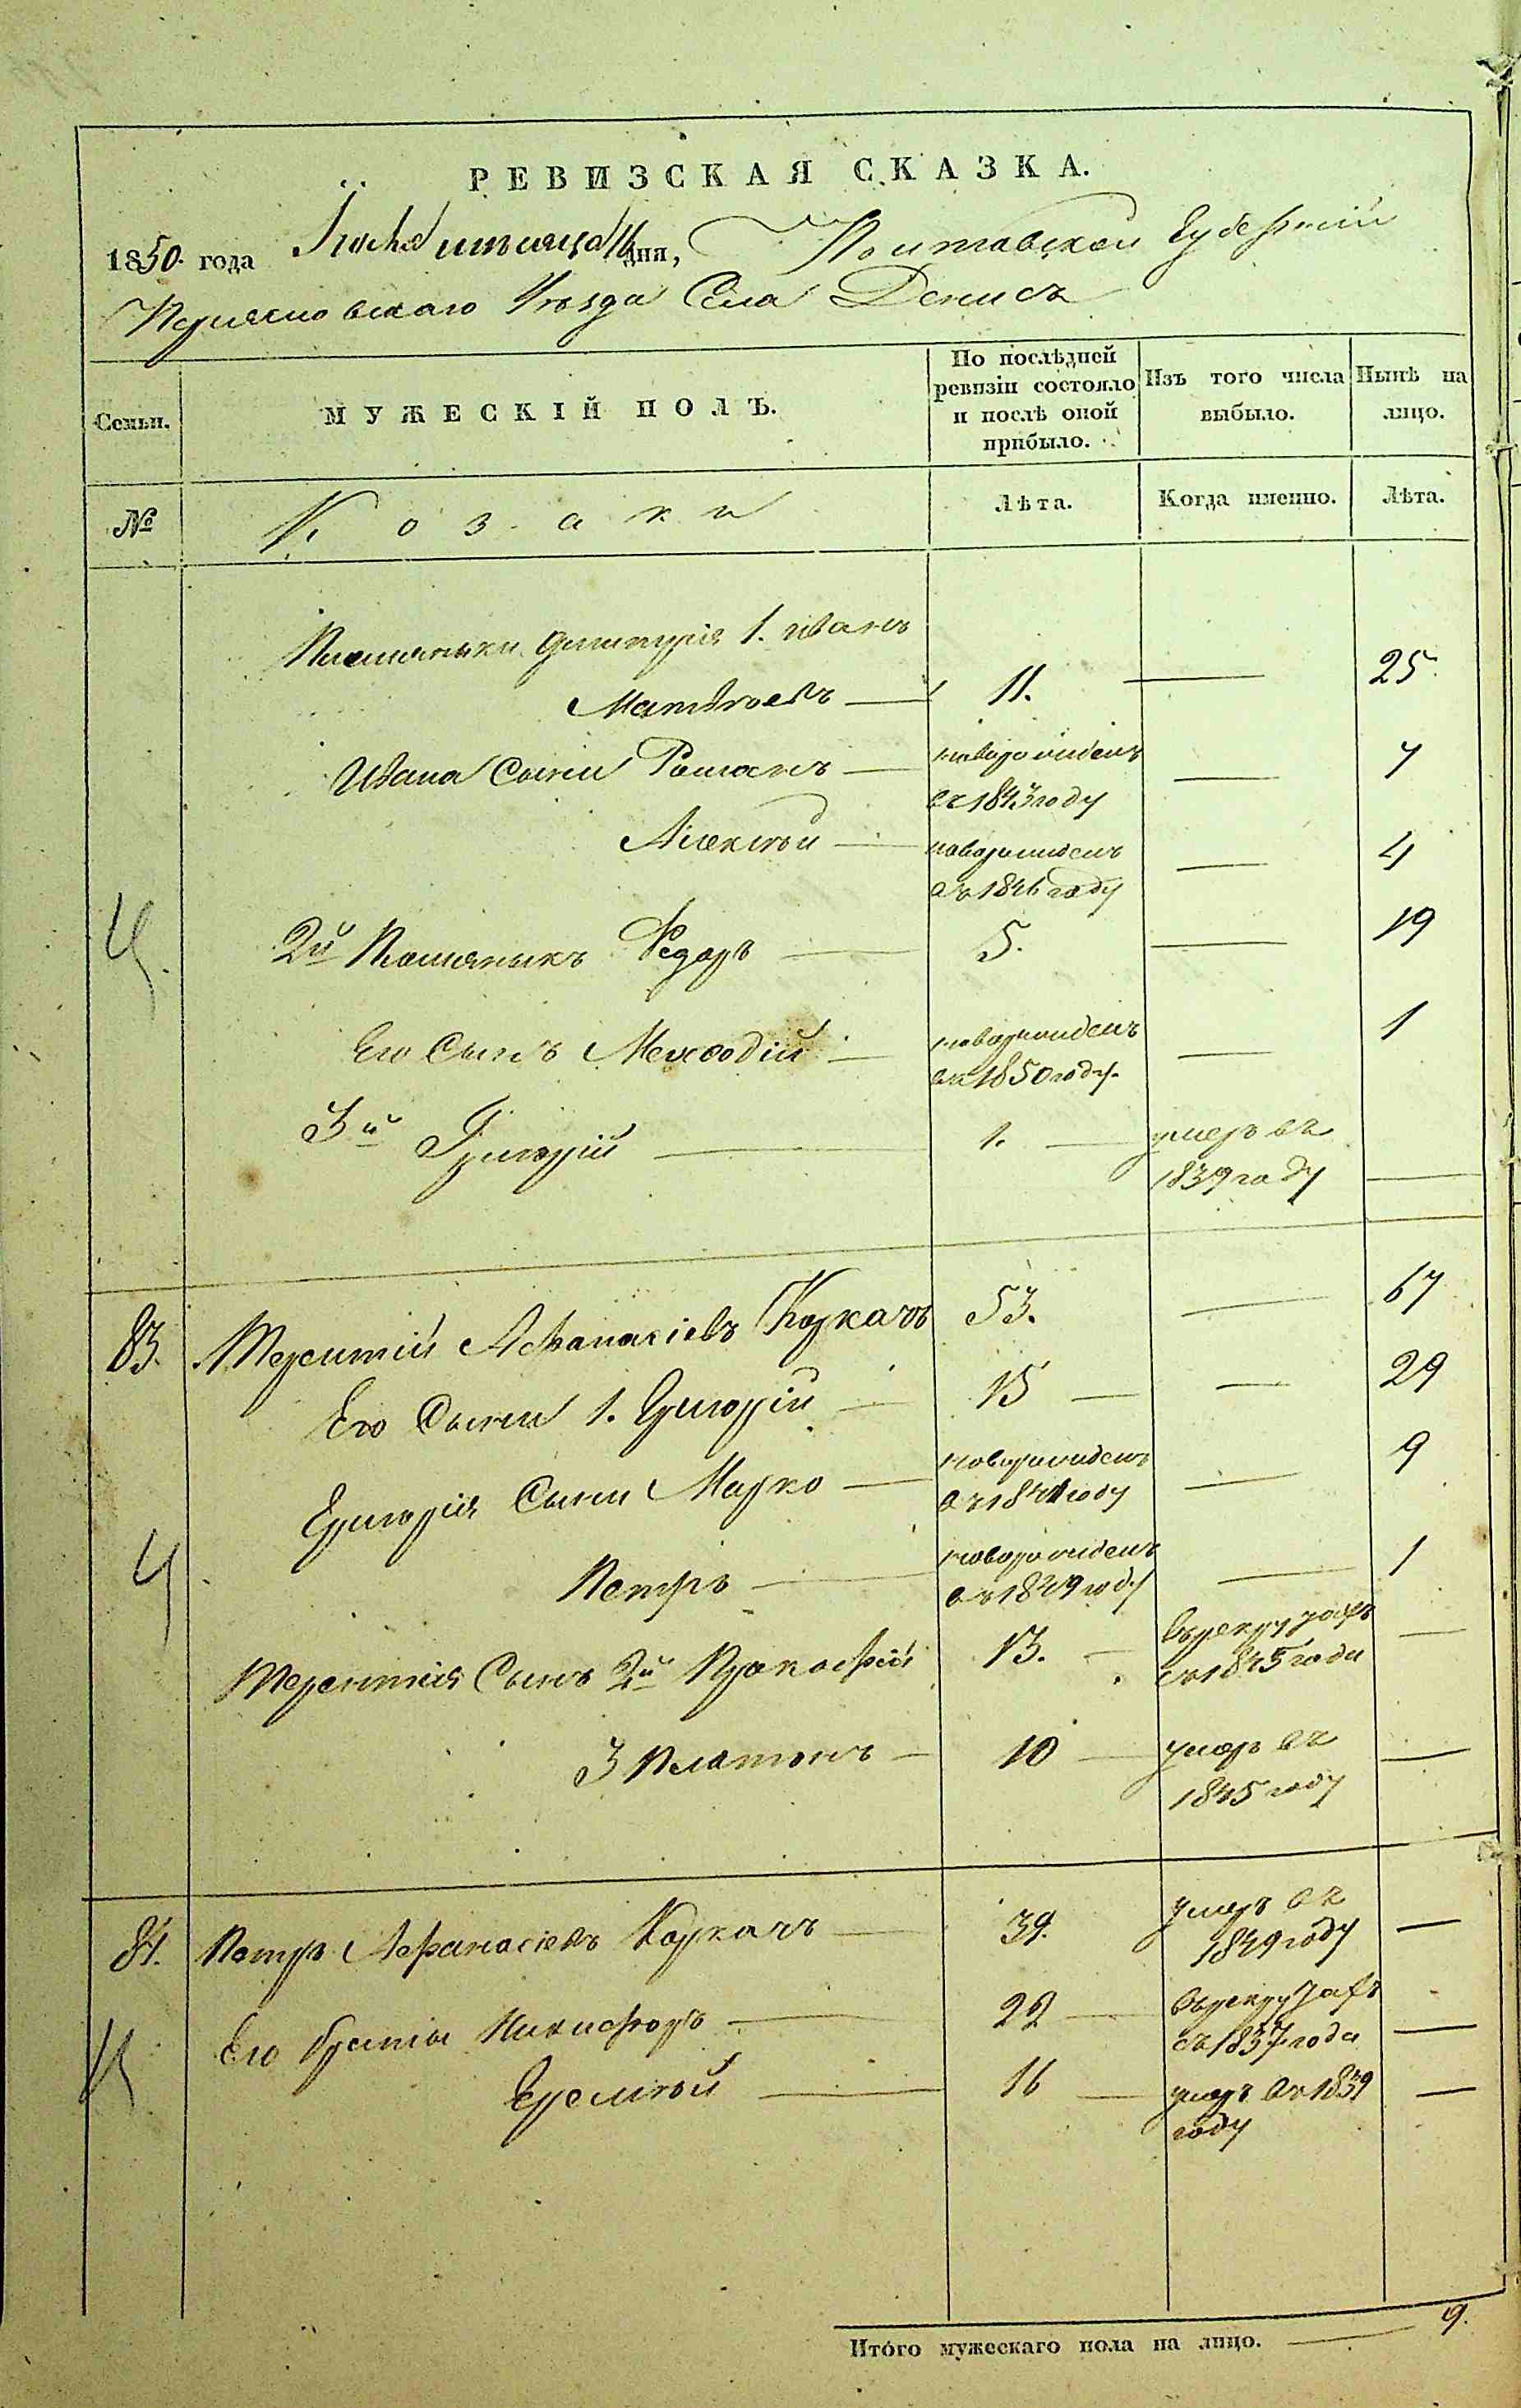 РЕВИЗСКАЯ СКАЗКА.
1850 года Ноября мѣсяца дня, Полтавской Губерніи
Переяславскаго Уѣзда Села Денисъ
Семьи.
МУЖЕСКІЙ ПОЛЪ.
По послѣдней ревизіи состояло и послѣ оной прибыло.
Изъ того числа выбыло.
Нынѣ на лицо.
№
Козаки
Лѣта.
Когда именно.
Лѣта.
Племянники Дмитрія 1. Иванъ
Матвѣевъ 11. 25
Ивана Сыни Романъ новорожденъ 7
въ 1843 году
Алексѣй новорожденъ 4
въ 1846 году
2й Племяникъ Федоръ 5. 19
Его Сынъ Мехводій новорожденъ 1
въ 1850 году.
3й Григорій 1. умеръ въ
1839 году
83. Терентий Афанасіевъ Коркачъ 53. 67
Его Сыни 1. Григорій 15 29
Григорія Сыни Марко новорожденъ 9
въ 1841 году
Петръ новорожденъ 1
въ 1849 году
Терентія Сынъ 2й Прокофій 13. въ рекрутахъ
съ 1845 года
3 Платонъ 10 умеръ въ
1845 году
84. Петръ Афанасіевъ Коркачъ 39. умеръ въ
1849 году
Его братья Никифоръ 22 въ рекрутахъ
съ 1837 года
Еремѣй 16 умеръ въ 1839
году
Итого мужескаго пола на лицо. 9.